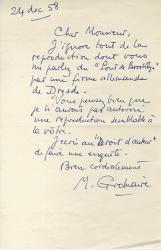 24 dec 58
Cher Monsieur,
J'ignore tout de la
reproduction dont vous
me parlez du "Pont de Brooklyn"
par une firme allemande
de Dresde.
Vous pensez bien que
je n'aurais pas autorisé
une reproduction semblable à
la vôtre.
J'écris au "Droit d'auteur"
de faire une enquête.
Bien cordialement
M. Gromaire